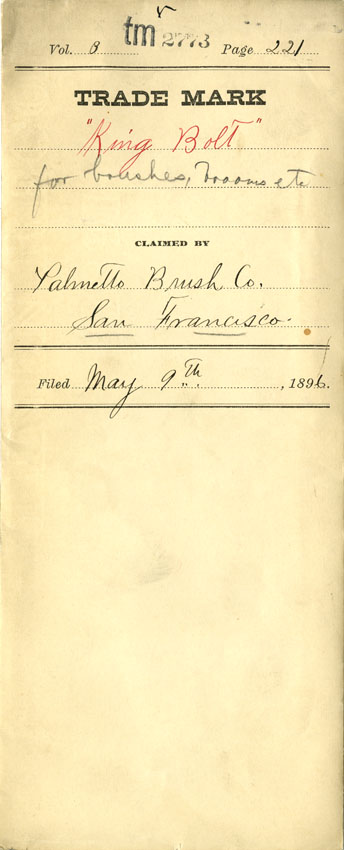 Vol. 8 tm 2773 Page 221
TRADE MARK
"King Bolt"
for brushes, brooms etc
CLAIMED BY
Palmetto Brush Co.
San Francisco.
Filed May 9th, 1896.